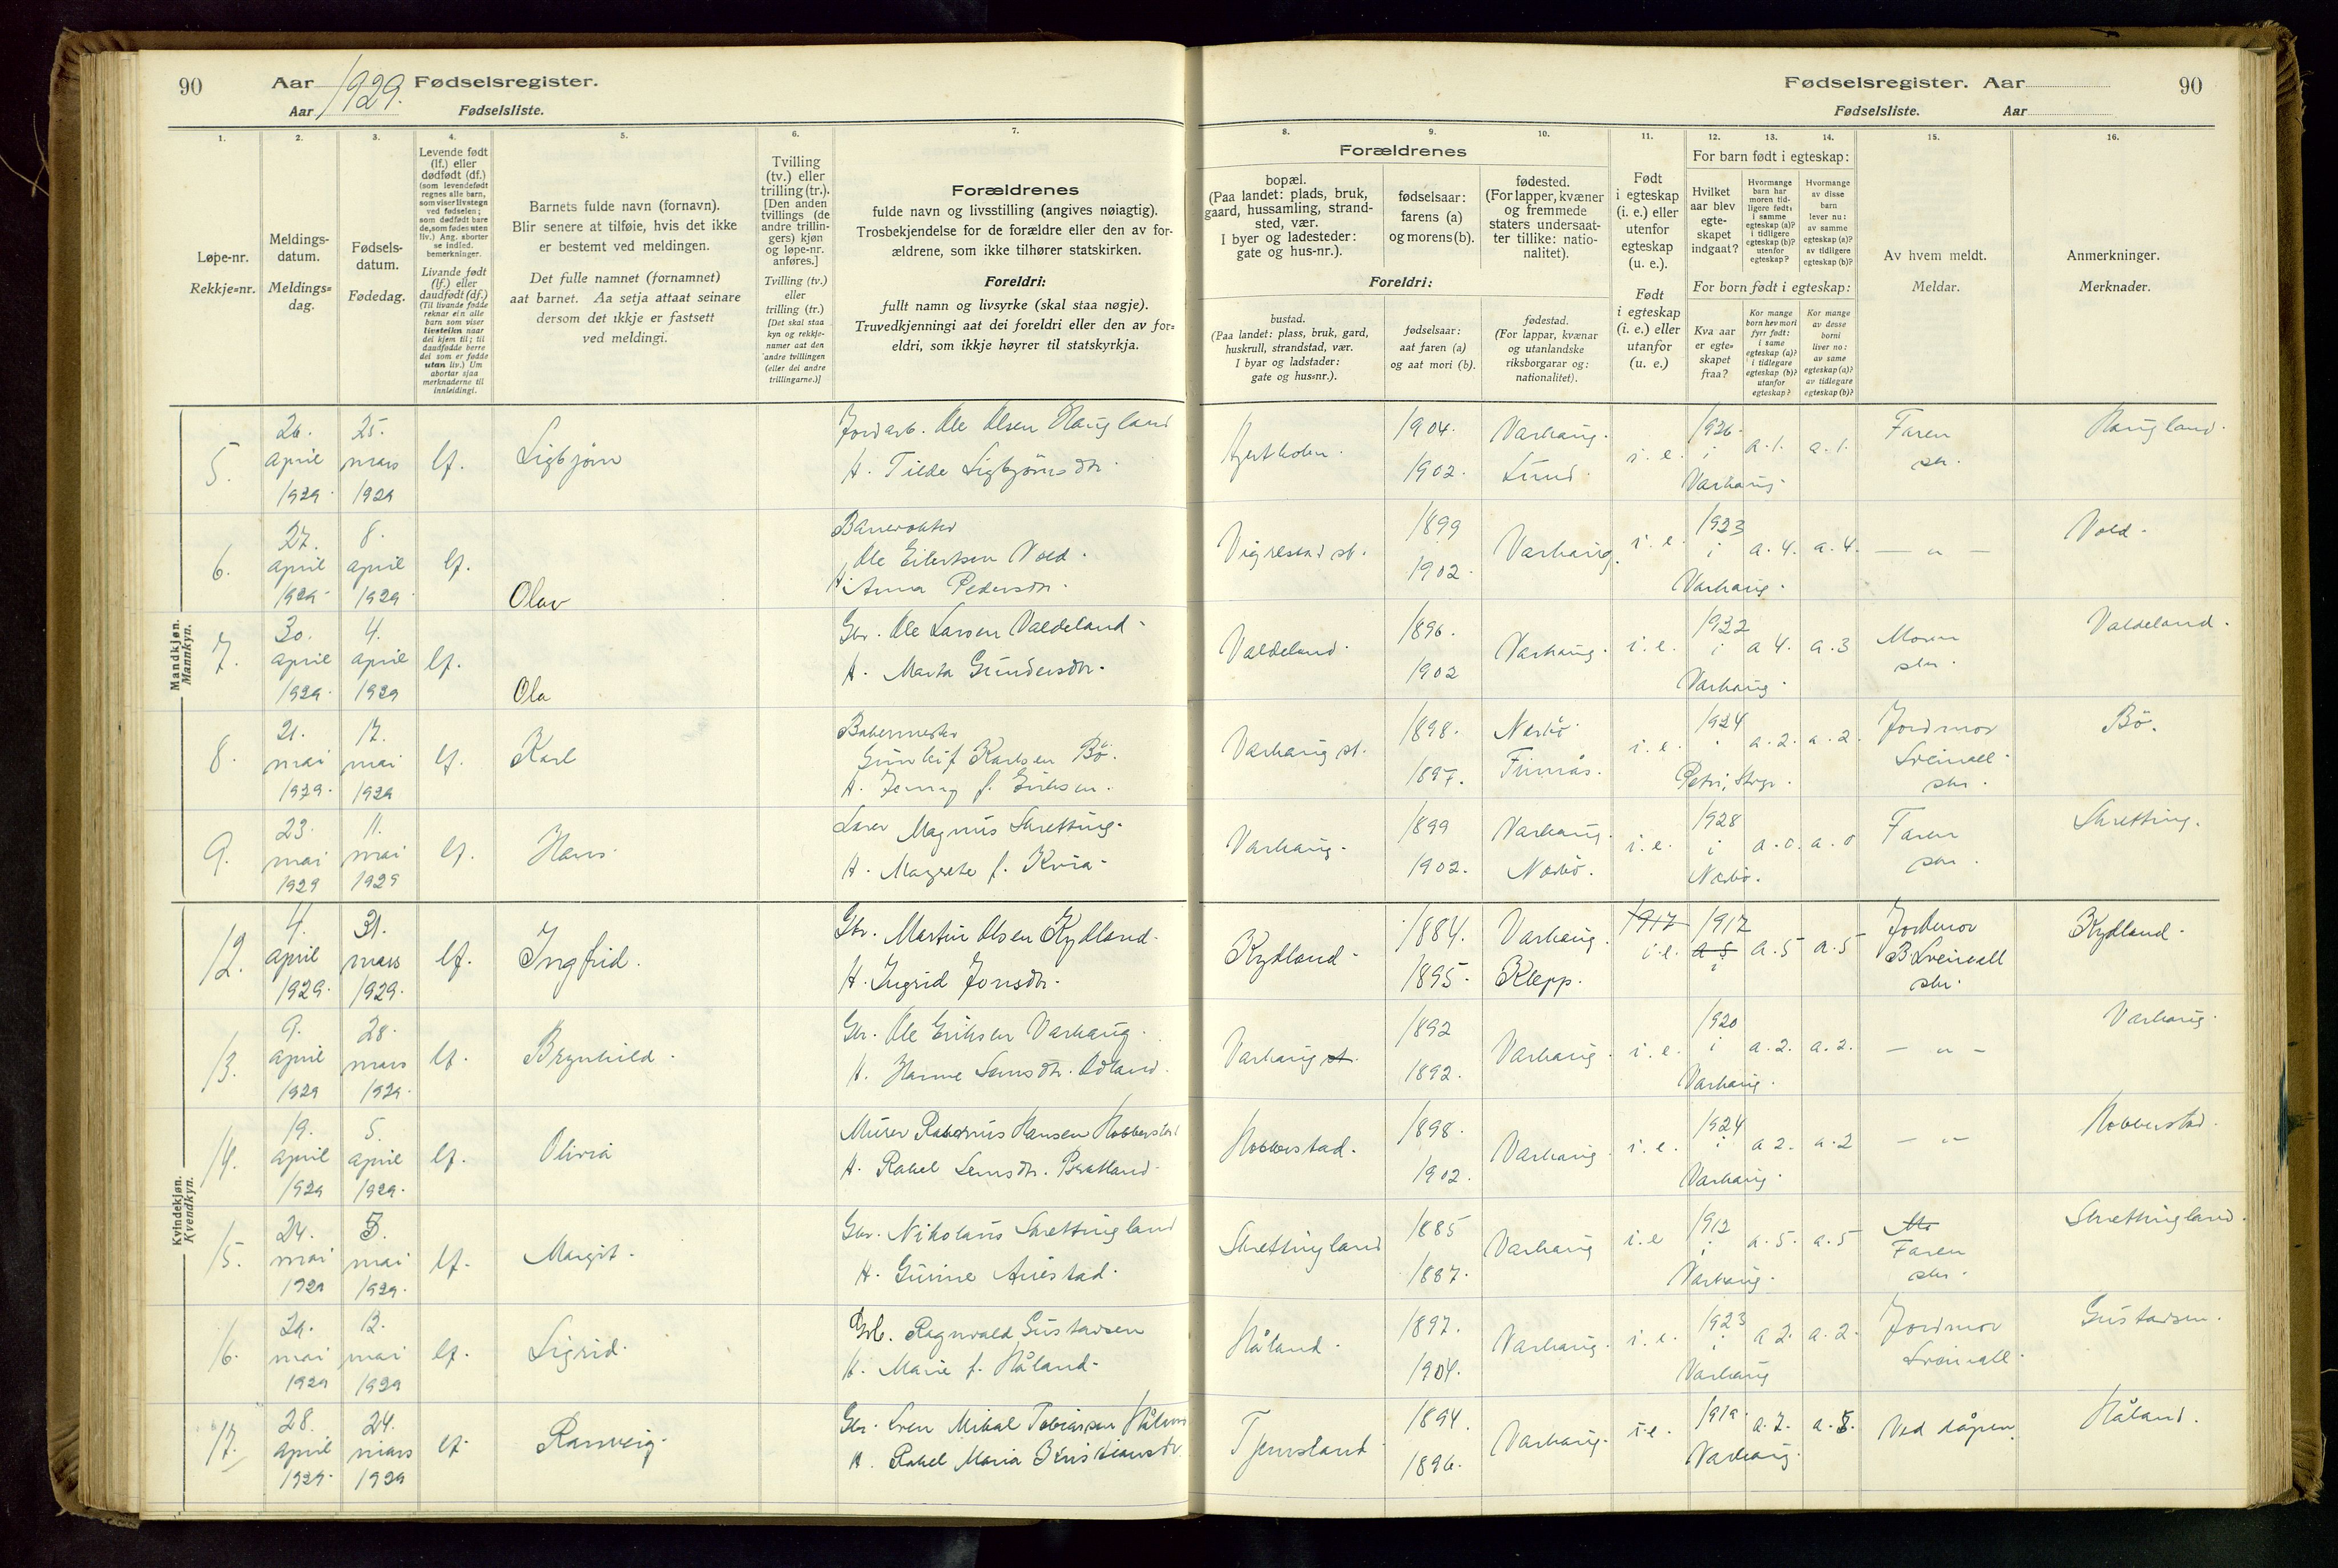 90
Aar 1929. Fødselsregister.
Aar Fødselsliste.
Fødselsregister. Aar
90
Fødselsliste. Aar
1. 2. 3. 4. 5. 6. 7. 8. 9. 10. 11. 12. 13. 14. 15. 16.
Løpe-nr.
Rekkje=nr.
Meldings-
datum.
Meldings=
dag.
Fødsels-
datum.
Fødedag.
Levende født
(lf.) eller
dødfødt (df.)
(som levendefødt
regnes alle barn,
som viser livstegn
ved fødselen;
som dødfødt bare
de, som fødes uten
liv.) Ang. aborter
se indled.
bemerkninger.
Livande født
(lf.) eller
daudfødt (df.)
(Til livande fødde
reknar ein alle
barn som viser
livsteikn naar
dei kjem til; til
daudfødde berre
dei som er fødde
utan liv.) Um
abortar sjaa
merknaderne til
innleidingi.
Barnets fulde navn (fornavn).
Blir senere at tilføie, hvis det ikke
er bestemt ved meldingen.
Det fulle namnet (fornamnet)
aat barnet. Aa setja attaat seinare
dersom det ikkje er fastsett
ved meldingi.
Tvilling
(tv.) eller
trilling (tr.).
[Den anden
tvillings (de
andre trillin-
gers) kjøn
og løpe-nr.
anføres.]
Tvilling (tv.)
eller
trilling (tr.)
[Det skal staa
kyn og rekkje-
numer aat den
andre tvillingen
(eller dei andre
trillingarne.)]
Forældrenes
fulde navn og livsstilling (angives nøiagtig).
Trosbekjendelse for de forældre eller den av for-
ældrene, som ikke tilhører statskirken.
Foreldri:
fullt namn og livsyrke (skal staa nøgje).
Truvedkjenningi aat dei foreldri eller den av for=
eldri, som ikkje høyrer til statskyrkja.
Forældrenes
bopæl.
(Paa landet: plads, bruk,
gaard, hussamling, strand-
sted, vær.
I byer og ladesteder:
gate og hus-nr.).
fødselsaar:
farens (a)
og morens (b).
fødested.
(For lapper, kvæner
og fremmede
staters undersaat-
ter tillike: natio-
nalitet).
Foreldri:
bustad.
(Paa landet: plass, bruk, gard,
huskrull, strandstad, vær.
I byar og ladstader:
gate og hus=nr.).
fødselsaar:
aat faren (a)
og aat mori (b).
fødestad.
(For lappar, kvænar
og utanlandske
riksborgarar og:
nationalitet).
Født
i egteskap
(i. e.) eller
utenfor
egteskap
(u. e.).
Født
i egteskap
(i. e.) eller
utanfor
(u. e.)
For barn født i egteskap:
Hvilket
aar blev
egte-
skapet
indgaat?
Hvormange
barn har
moren tid-
ligere født:
i samme
egteskap (a)?
i tidligere
egteskap (b)?
utenfor
egteskap?
Hvormange
av disse
barn
lever nu:
av samme
egteskap (a)?
av tidligere
egteskap (b)?
For born født i egteskap:
Kva aar
er egte=
skapet
fraa?
Kor mange
born hev mori
fyrr født:
i same
egteskap (a)?
i tidlegare
egteskap (b)?
utanfor
egteskap?
Kor mange
av desse
borni
liver no:
av same
egteskap (a)?
av tidlegare
egteskap (b)?
Av hvem meldt.
Meldar.
Anmerkninger.
Merknader.
Mandkjøn.
Mannkyn.
5. 26. april 1929. 25. mars 1929 lf. Sigbjørn
Jordarb. Ole Olsen Haugland
H. Tilde Sigbjørnsdtr.
1904. 1902. Varhaug. Lund. i. e. 1926. i Varhaug. a. 1. a. 1. Faren Haugland.
6. 27. april 1929. 8. april 1929. lf. Olav
Ole Eilertsen Vold.
H. Anna Pedersdtr.
Vigrestad st. 1899 1902. Varhaug. i. e. 1923 i Varhaug. a. 4. a. 4. — " — Vold.
7. 30. april 1929. 4. april 1929 lf. Ola
Gbr. Ole Larsen Valdeland.
H. Marta Gundersdtr.
Valdeland. 1896. 1902 Varhaug. i. e. 1922 i Varhaug. a 4. a. 3 Moren Valdeland.
8. 21. mai 1929. 17. mai 1929 lf. Karl
Bakermester
Gunleif Karlsen Bö.
H. Jenny f. Eriksen.
Varhaug st. 1898. 1897. Nærbö. i. e. 1924 Petri, Stvgr. a. 2. a. 2. Jordmor Bö.
9. 23. mai 1929 11. mai 1929 lf. Hans.
Lærer Magnus Skretting.
H. Magrete f. Kvia.
Varhaug. 1899 1902. Varhaug. Nærbö. i. e. 1928 i Nærbö. a. 0. a. 0 Faren Skretting.
Kvindekjøn.
Kvendkyn.
12. 4. april 1929. 31. mars 1929. lf. Ingfrid.
Gbr. Martin Olsen Kydland.
H. Ingrid Jonsdtr.
Kydland. 1884. 1895. Varhaug. Klepp. 1917 i. e. 1917 a 5 i a. 5 a. 5 Jordmor Kydland.
13. 9. april 1929 28. mars 1929. lf. Brynhild.
Gbr. Ole Eriksen Varhaug.
H. Hanne Larsdtr. Ödland.
Varhaug st. 1892 1892. Varhaug. i. e. 1920 i Varhaug. a. 2. a. 2. — " — Varhaug.
14. 19. april 1929 5. april 1929. lf. Olivia
Murer Rasmus Hansen Hobberstad
H. Rakel Larsdtr. Bratland.
Hobberstad. 1898. 1902. Varhaug. i. e. 1924 i Varhaug. a 2. a. 2 — " — Hobberstad.
15. 24. mai 1929 3. mai 1929. lf. Margit.
Gbr. Nikolaus Skrettingland
H. Gurine Auestad.
Skrettingland 1885 1887. Varhaug i. e 1912 i Varhaug. a. 5. a. 5 Mo Faren Skrettingland.
16. 29. mai 1929 12. mai 1929 lf. Sigrid.
Ragnvald Gustavsen
H. Marie f. Håland.
Håland. 1897. 1904. Varhaug. i. e. 1923 i Varhaug a 2. a. 2. Jordmor Gustavsen.
17. 28. april 1929. 24. mars 1929 lf. Ranveig.
Gbr. Sven Mikal Tobiassen Håland
H. Rakel Maria Kristiansdtr
Tjemsland 1894. 1896. Varhaug. i. e. 1919. Varhaug. a. 7. Ved dåpen Håland.